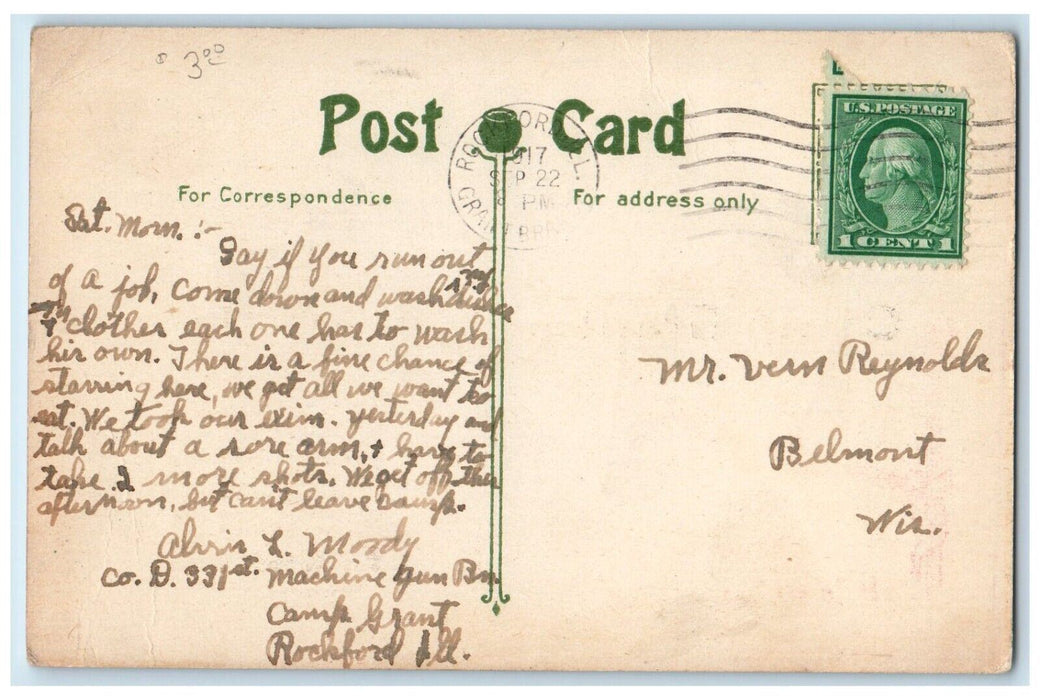 $ 3.00
Post Card
ROCKFORD, ILL.
1917
SEP 22
8 PM
GRANT BRANCH
U.S. POSTAGE
1 CENT 1
For Correspondence
For address only
Sat. Morn. :-
Say if you run out
of a job, come down and wash dishes
+ clothes each one has to wash
his own. There is a fine chance of
starving here, we get all we want to
eat. We took our exim. yesterday and
talk about a sore arm, + have to
take 2 more shots. We get off this
afternoon, but can't leave camp.
Alvin L. Moody
Co. D. 331st. Machine Gun Bn.
Camp Grant
Rockford Ill.
Mr. Vern Reynolds
Belmont
Wis.